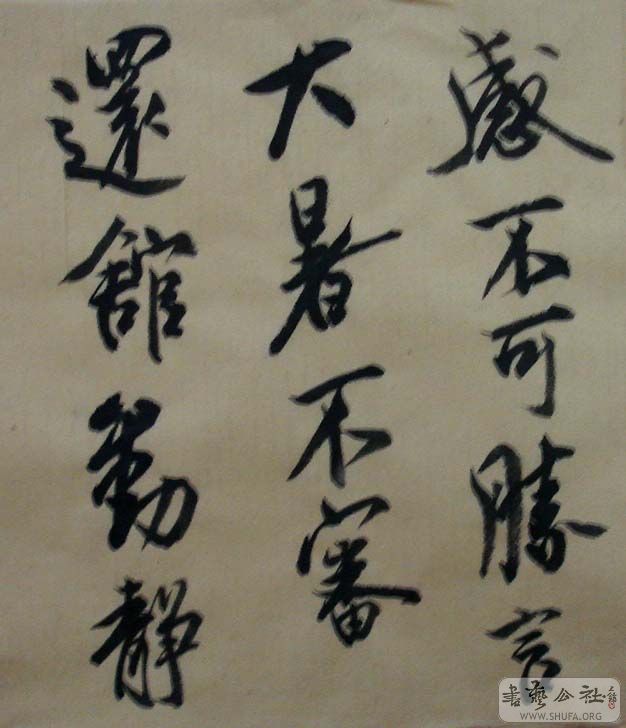 感不可勝言
大暑不審
還館動靜
書藝公社
WWW.SHUFA.ORG